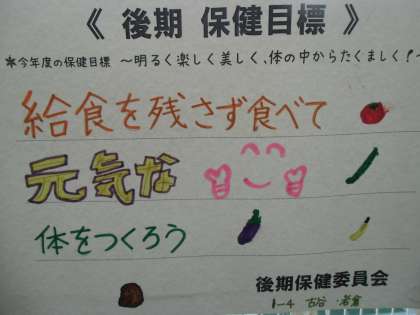 《 後期 保健目標 》
*今年度の保健目標 ～明るく楽しく美しく、体の中からたくましく!～
給食を残さず食べて
元気な
体をつくろう
後期保健委員会
1-4 古谷・岩倉